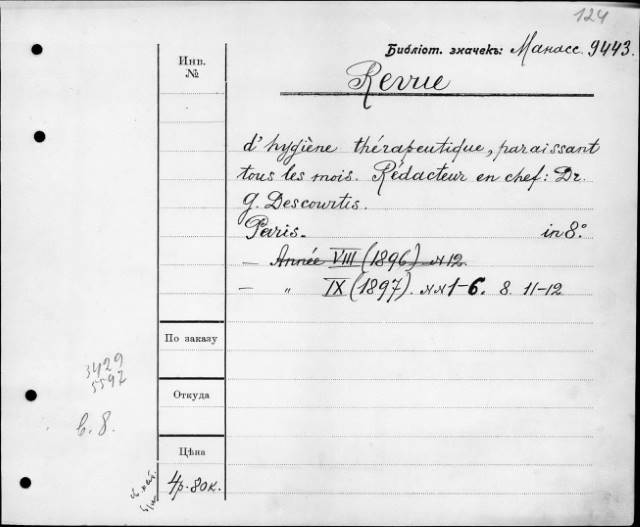 124
Библіот. значекъ: Манасс. 9443.
Инв. №
Revue
d'hygiène thérapeutique, paraissant
tous les mois. Rédacteur en chef: Dr.
G. Descourtis.
Paris. in 8.°
— Année VIII (1896) N 12.
— " IX (1897). NN 1-6. 8. 11-12
По заказу
3429
5592
Откуда
в. 8.
Цѣна
4р. 80к.